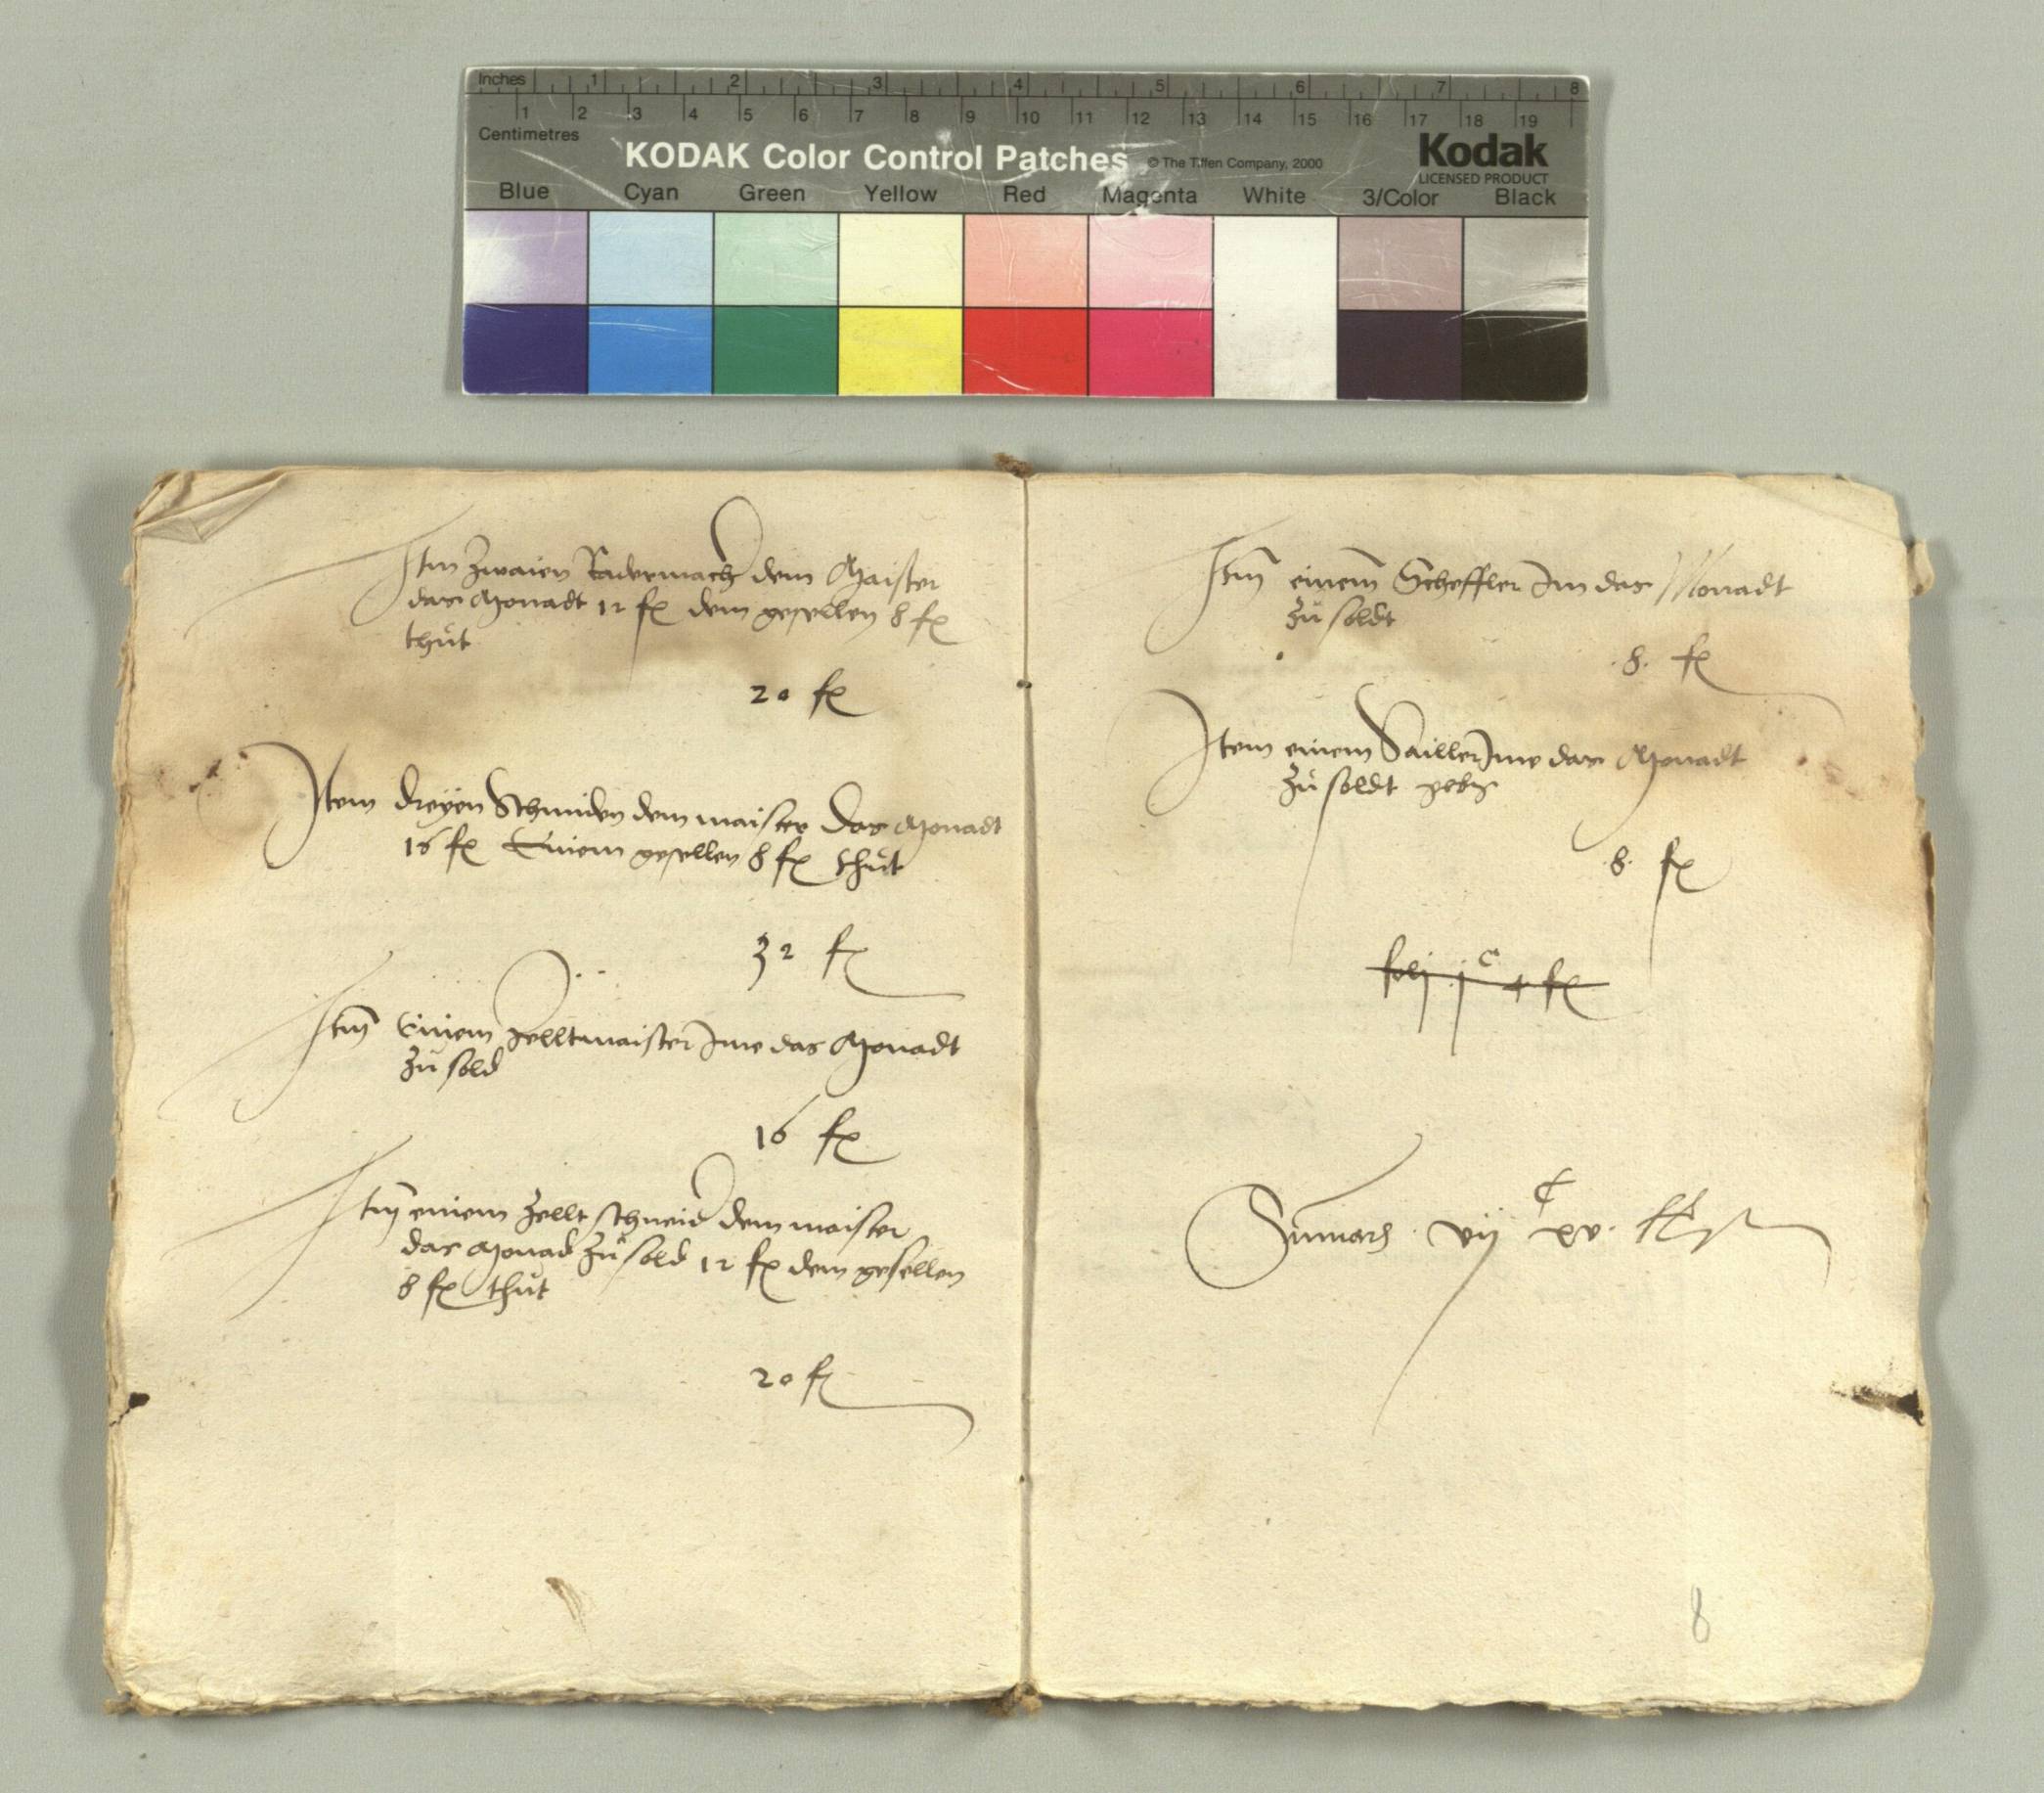 Inches 1 2 3 4 5 6 7 8
1 2 3 4 5 6 7 8 9 10 11 12 13 14 15 16 17 18 19
Centimetres
KODAK Color Control Patches © The Tiffen Company, 2000
Kodak
LICENSED PRODUCT
Blue Cyan Green Yellow Red Magenta White 3/Color Black
Itm zwaien Radermach dem Maister
das Monadt 12 fl dem gesellen 8 fl
thut
20 fl
Item dreyen Schmiden dem maister das Monadt
16 fl Einem gesellen 8 fl thut
32 fl
Itm Einem Zelltmaister Ime das Monadt
zu sold
16 fl
Itm einem Zellt schneid dem maister
das Monad zu sold 12 fl dem gesellen
8 fl thut
20 fl
Itm einem Scheffler Im das Monadt
zu soldt
.8. fl
Item einem Sailler Ime das Monadt
zu soldt geben
8. fl
j c 4 fl
vij C xv.
8